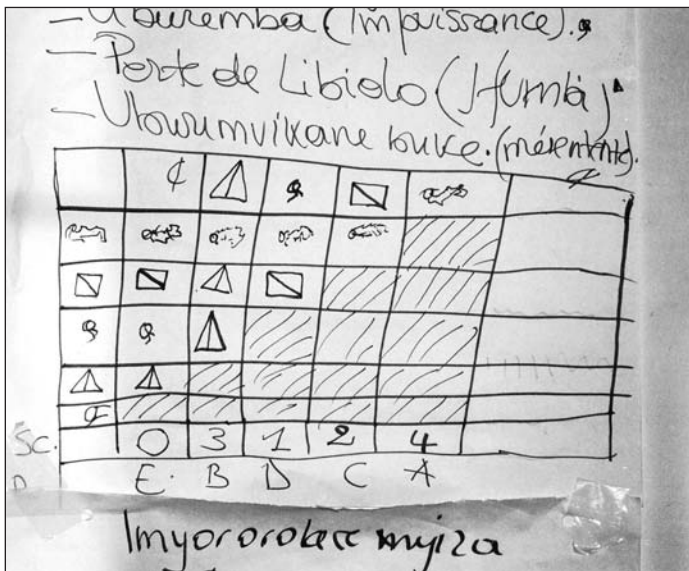 - Uburemba (Impuissance).
- Perte de Libido (Humba)
- Ubwumvikane buke. (mésentente).
¢
Sc. 0 3 1 2 4
E. B D C A
Imyororokere myiza